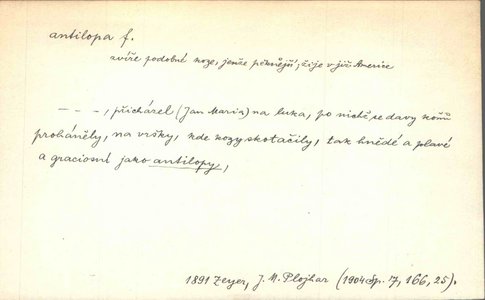 antilopa f.
zvíře podobné koze, jenže pěknější; žije v již. Americe
– – –, přicházel (Jan Maria) na luka, po nichž se davy koňů
proháněly, na vršky, kde kozy skotačily, tak hnědé a plavé
a graciosní jako antilopy,
1891 Zeyer, J. M. Plojhar (1904 Sp. 7, 166, 25).